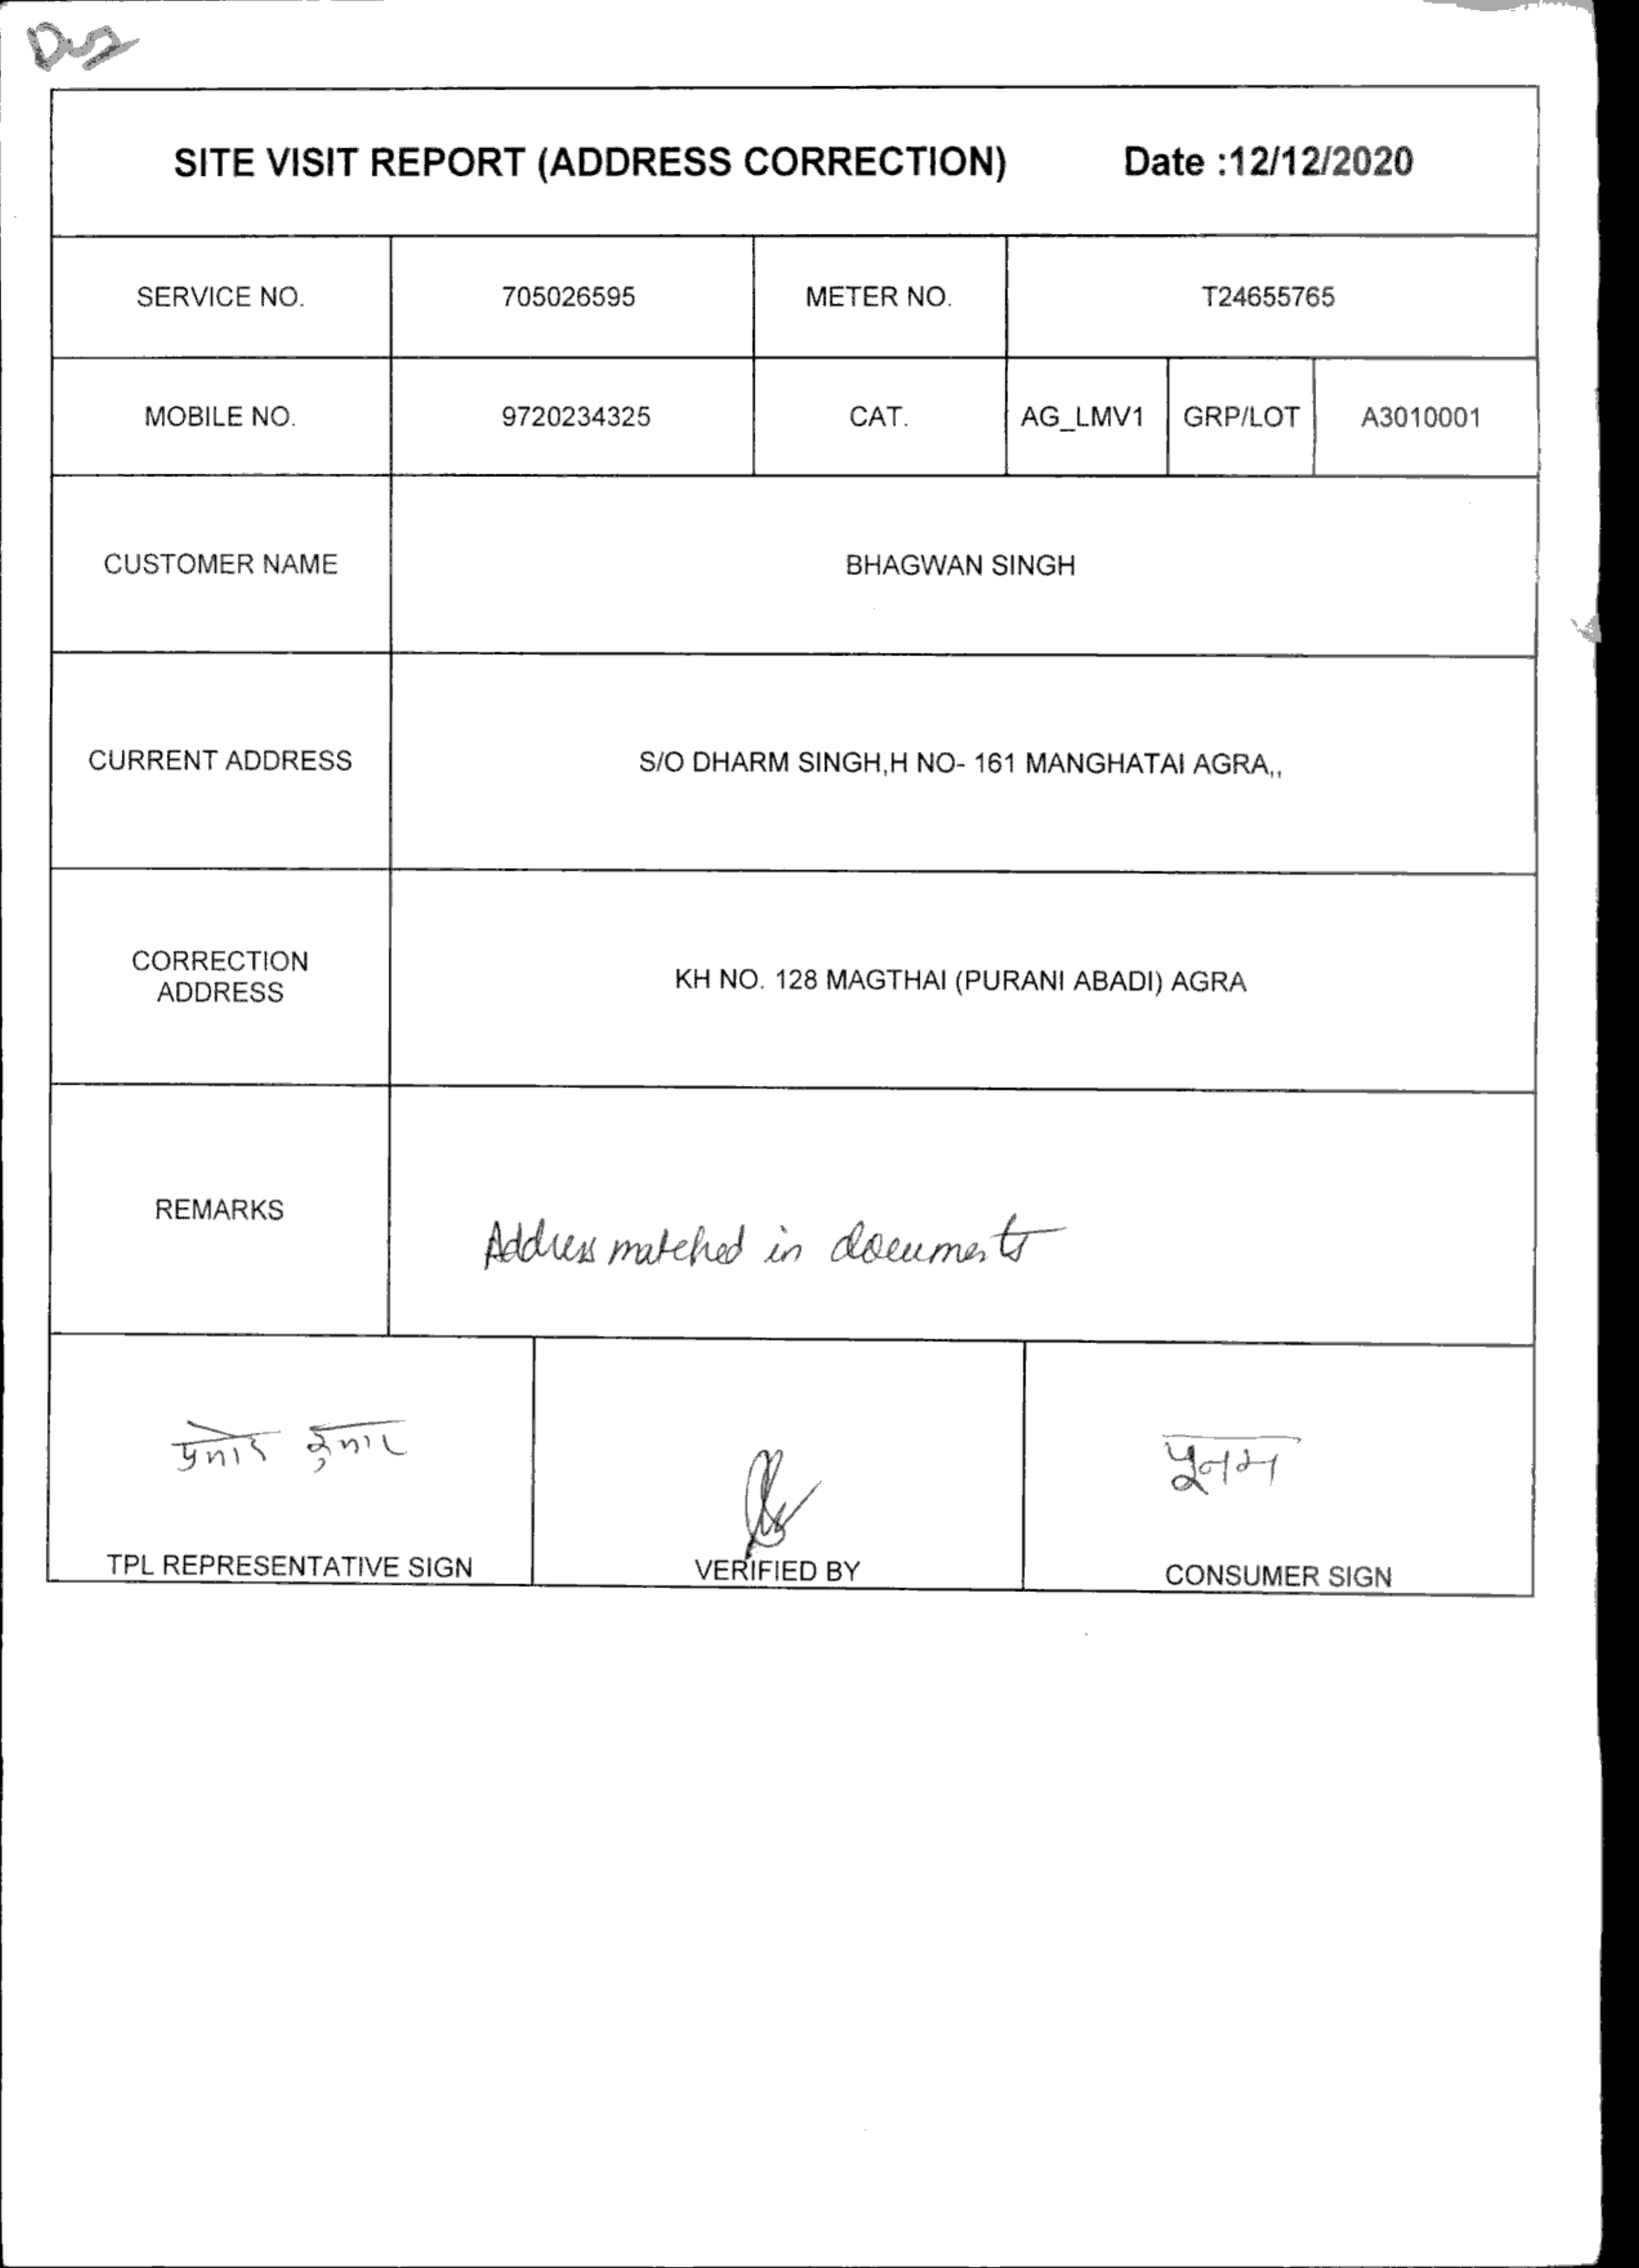 SITE VISIT REPORT (ADDRESS CORRECTION) Date :12/12/2020
SERVICE NO. 705026595 METER NO. T24655765
MOBILE NO. 9720234325 CAT. AG_LMV1 GRP/LOT A3010001
CUSTOMER NAME BHAGWAN SINGH
CURRENT ADDRESS S/O DHARM SINGH,H NO- 161 MANGHATAI AGRA,,
CORRECTION
ADDRESS
KH NO. 128 MAGTHAI (PURANI ABADI) AGRA
REMARKS
Address matched in documents
कुमार
पूनम
TPL REPRESENTATIVE SIGN VERIFIED BY CONSUMER SIGN